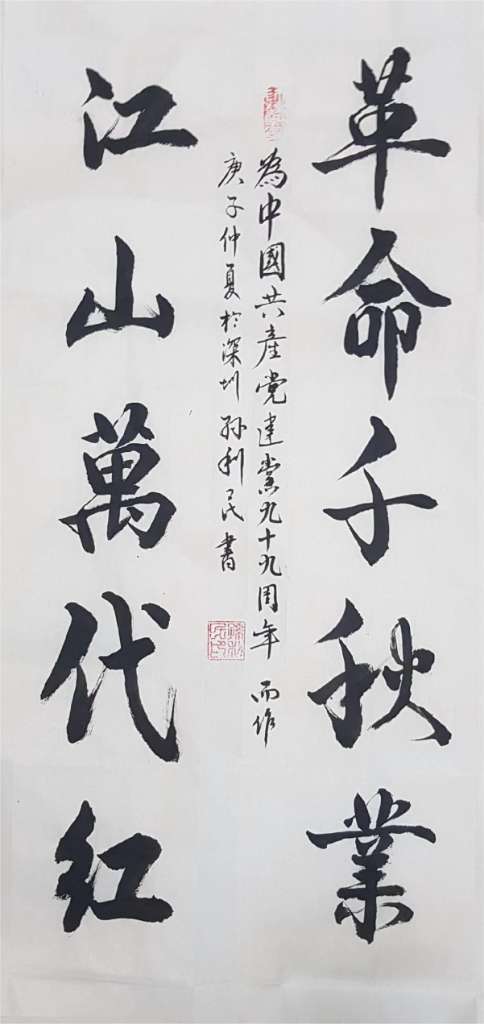 革命千秋業
為中國共產党建黨九十九周年 而作
庚子仲夏於深圳 孙利民書
江山萬代红